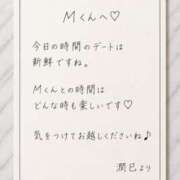 Mくんへ♡
今日の時間のデートは
新鮮ですね。
Mくんとの時間は
どんな時も楽しいです♡
気をつけてお越しくださいね♪
潤巳より